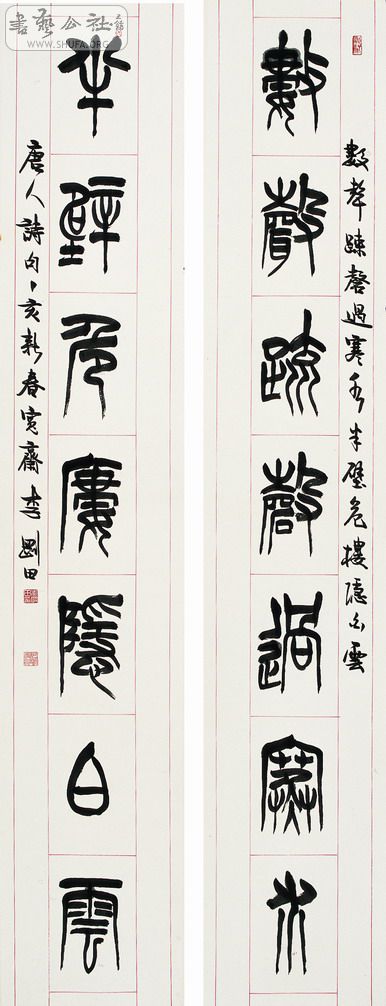 數聲踈磬過寒水半壁危樓隱白雲
數聲疏磬過寒水
半壁危廔隱白雲
唐人詩句丁亥新春寬齋李剛田
書藝公社
WWW.SHUFA.ORG